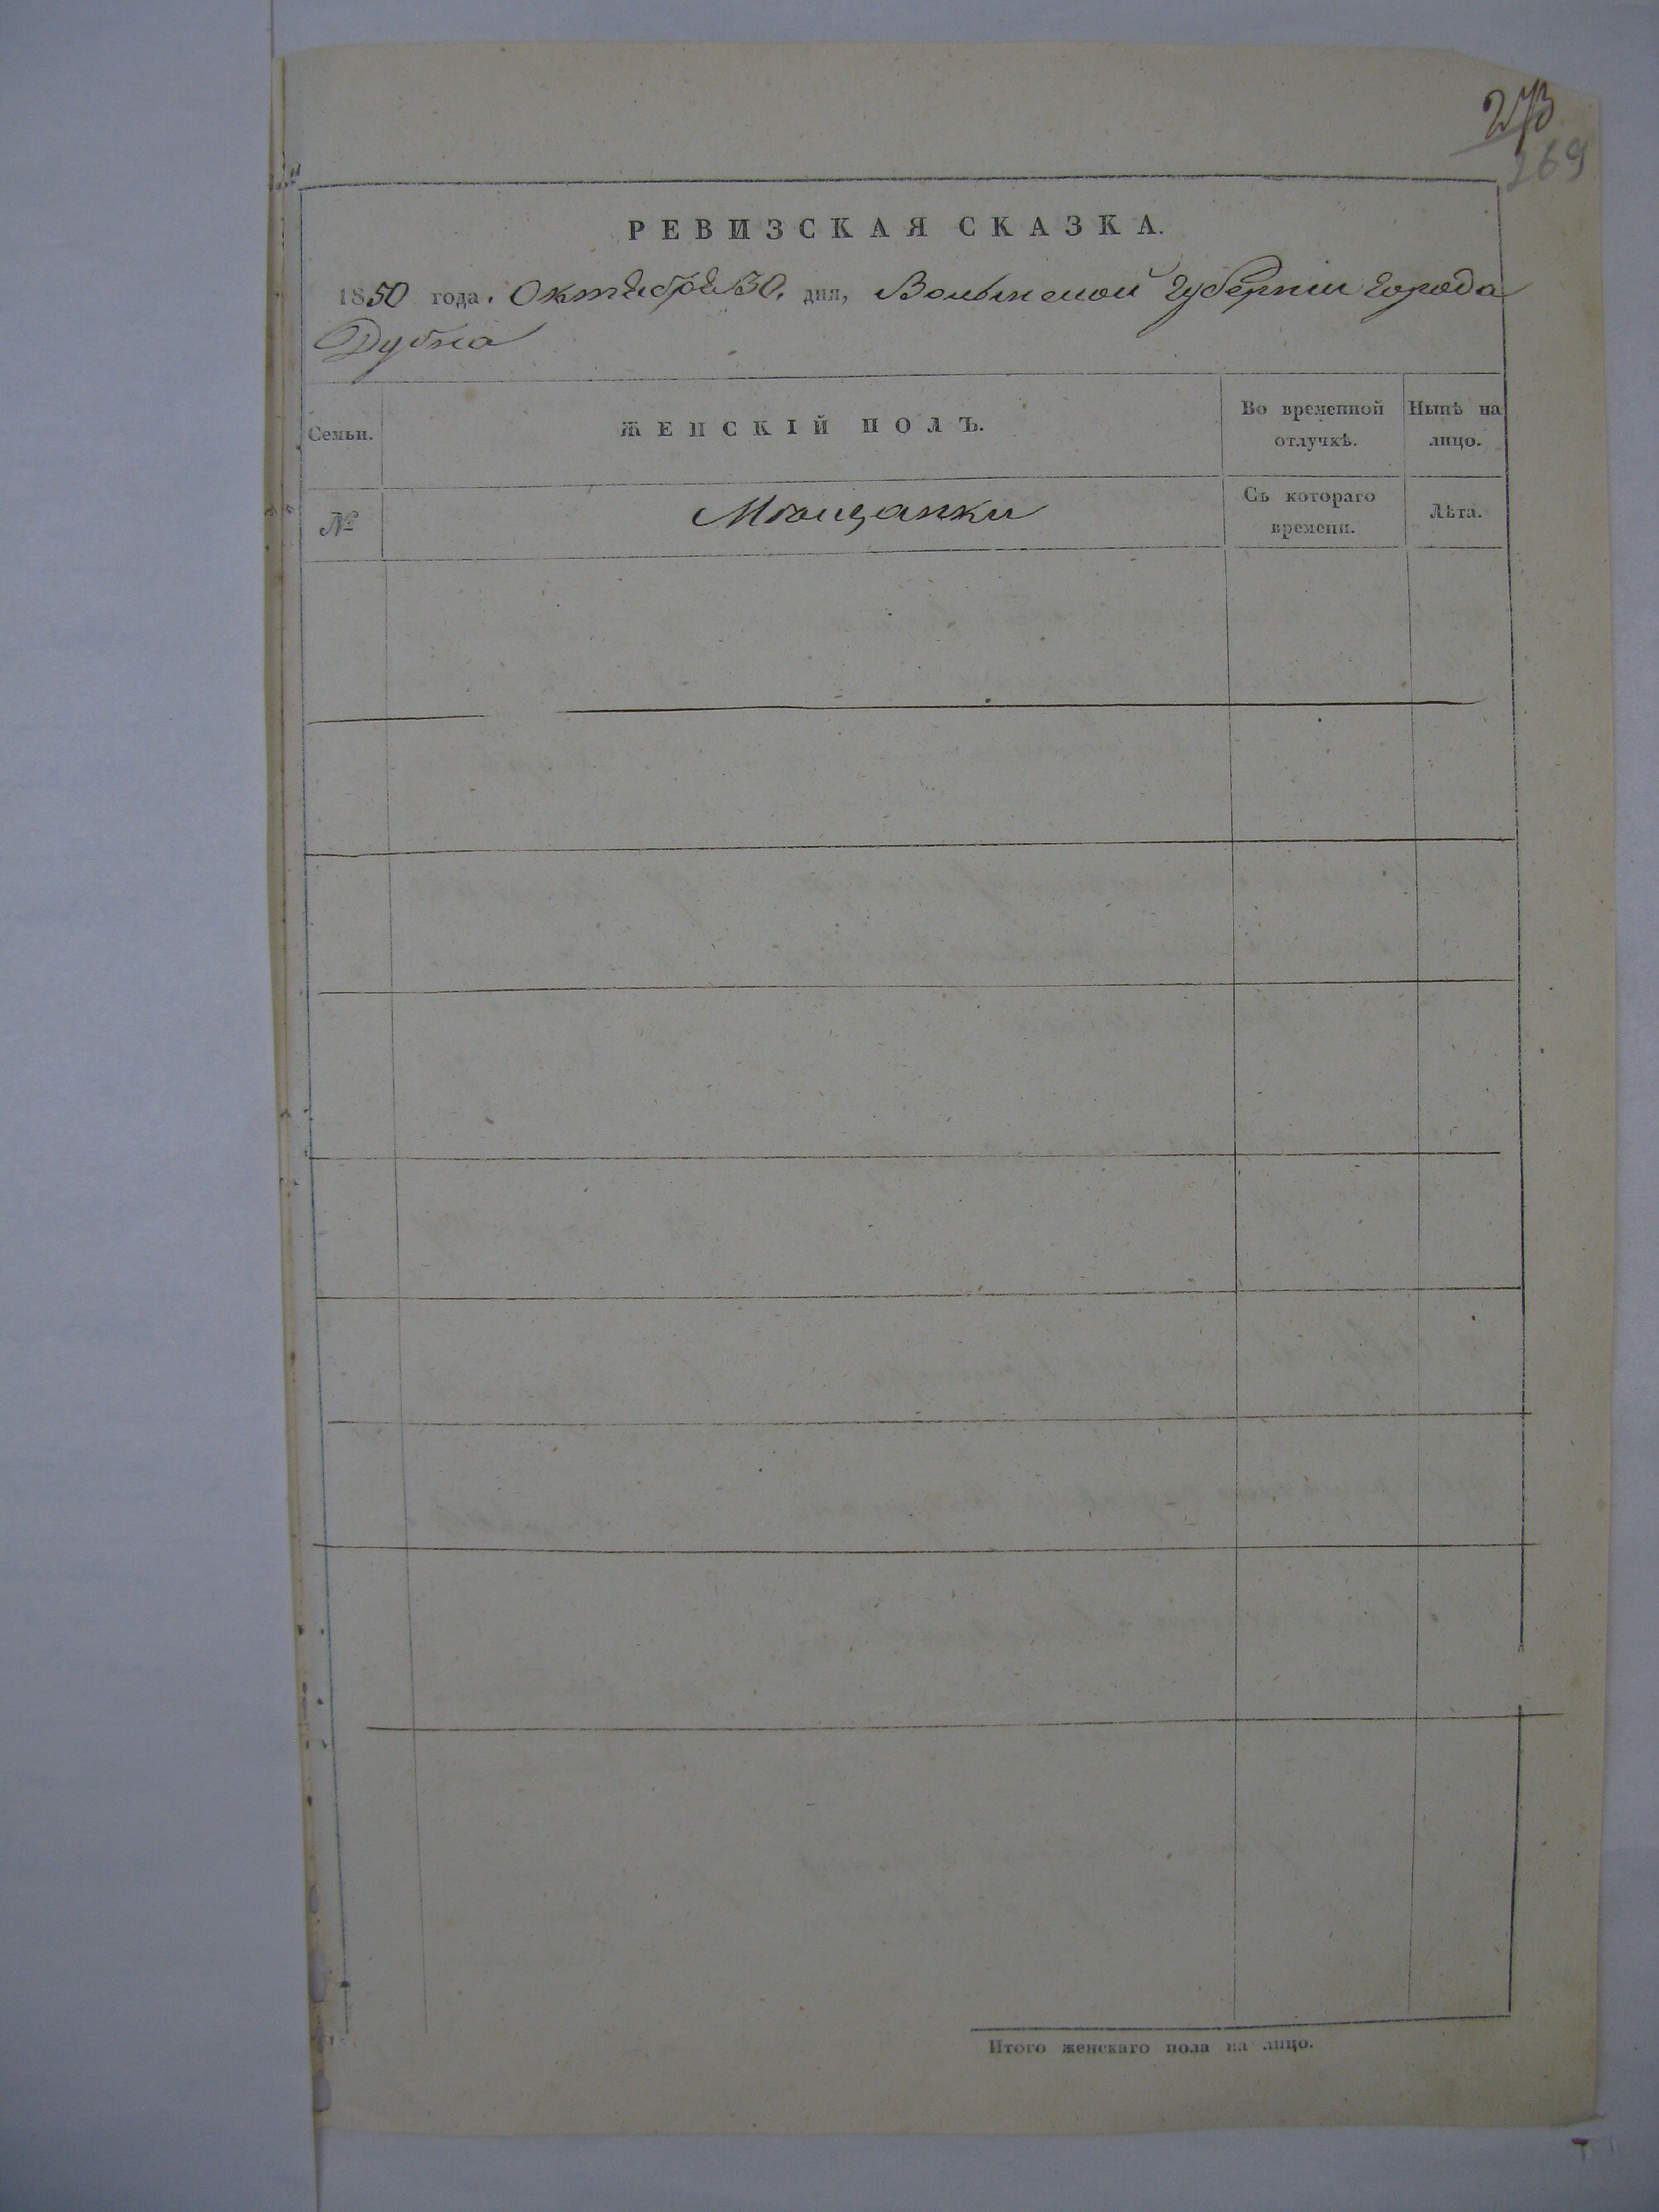 273
269
РЕВИЗСКАЯ СКАЗКА.
1850 года. Октября 30. дня, Волынской Губернии города
Дубна
Семьи.
ЖЕНСКІЙ ПОЛЪ.
Во временной отлучкѣ.
Нынѣ на лицо.
№
Мѣщанки
Съ котораго времени.
Лѣта.
Итого женскаго пола на лицо.